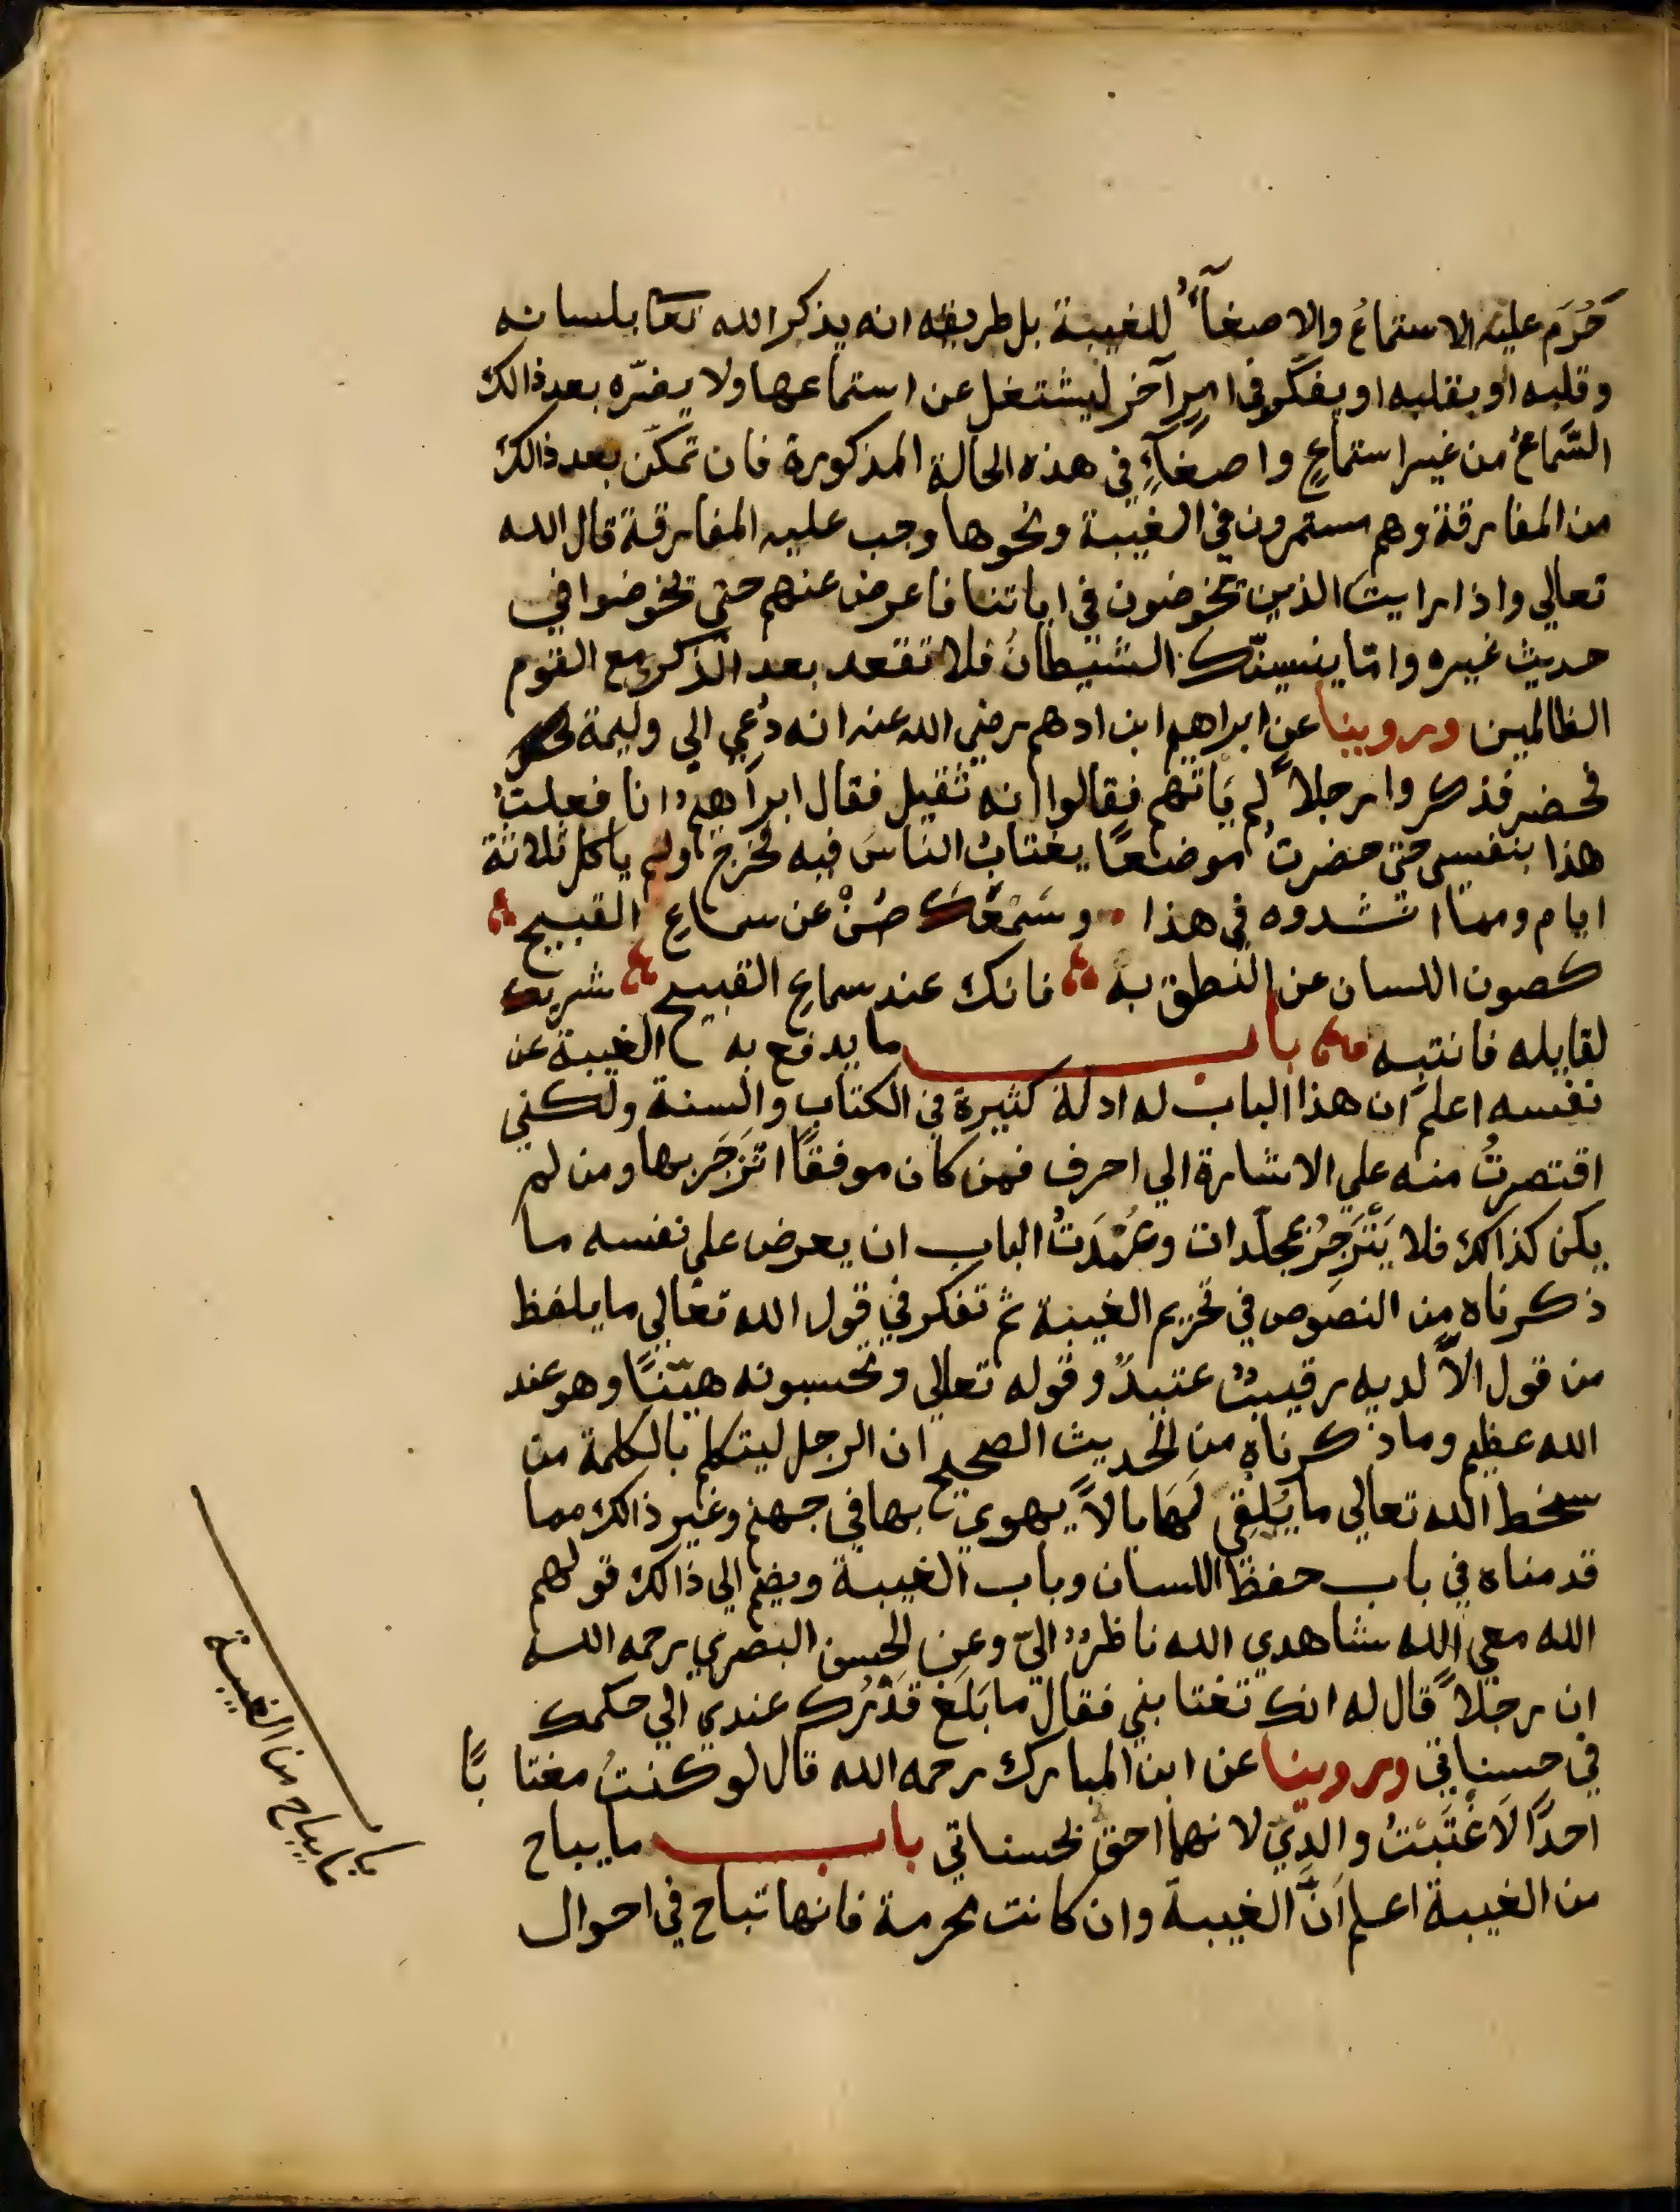 حَرُمَ عليه الاستماعُ والاصغآءُ للغيبة بل طريقه انه يذكر الله تعا بلسانه
وقلبه او بقلبه او يفكّر في امرٍ آخر ليشتغل عن استماعها ولا يضرّه بعد ذالك
السَّماعُ من غير استماعٍ واصغآءٍ في هذه الحالة المذكورة فان تمكّن بعد ذالك
من المفارقة وهم مستمرون في الغيبة ونحوها وجب عليه المفارقة قال الله
تعالي واذا رايت الذين يخوضون في اياتنا فاعرض عنهم حتى يخوضوا في
حديث غيره وامّا ينسينّك الشيطانُ فلا تقعد بعد الذكرى مع القوم
الظالمين وروينا عن ابراهيم ابن ادهم رضي الله عنه انه دُعي الي وليمة
فحضر فذكروا رجلاً لم يَاتهم فقالوا انه ثقيل فقال ابراهيمُ انا فعلتُ
هذا بنفسي حتى حضرتُ موضعًا يغتابُ الناسَ فيه فخرج ولم ياكل ثلاثة
ايام ومما انشدوه في هذا وسَمْعَكَ صُنْ عن سماعِ القبيح
كصون اللسان عن النطق به فانك عند سماع القبيح شريك
لقايله فانتبه باب ما يدفع به الغيبة عن
نفسه اعلم ان هذا الباب له ادلة كثيرة في الكتاب والسنة ولكني
اقتصرتُ منه علي الاشارة الي احرف فمن كان موفقًا انزَجَر بها ومن لم
يكن كذالك فلا يَنْزَجِرُ بمجلّدات وعُمْدَتُ الباب ان يعرض على نفسه ما
ذكرناه من النصوص في تحريم الغيبة ثم تفكر في قول الله تعالي ما يلفظ
من قول الاّ لديه رقيبٌ عتيدٌ وقوله تعالي وتحسبونه هيّنًا وهو عند
الله عظيم وما ذكرناه من الحديث الصحيح ان الرجل ليتكلم بالكلمة من
سخط الله تعالي ما يُلقِى لَهَا بالاً يهوي بها في جهنم وغير ذالك مما
قدمناه في باب حفظ اللسان وباب الغيبة ويضم الي ذالك قولهم
الله معي الله شاهدي الله ناظرٌ اليّ وعن الحسن البصري رحمه الله
ان رجلاً قال له انك تغتابني فقال ما بَلَغَ قَدْرُك عندي الي حكمك
في حسناتي وروينا عن ابن المبارك رحمه الله قال لو كنتُ مغتابًا
احدًا لَاغْتَبتُ والدِيّ لانهما احق بحسناتي باب ما يباح
من الغيبة اعلم اَنَّ الغيبة وان كانت محرمة فانها تباح في احوال
باب
ما يباح من الغيبة